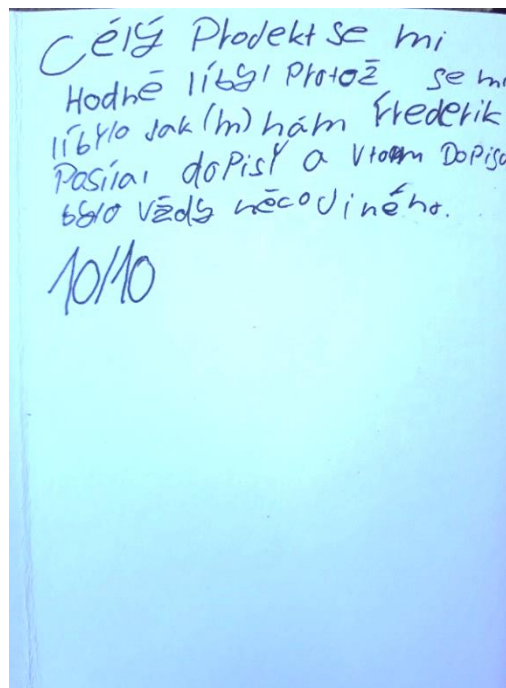 Célý Prodekt se mi
Hodně líbyl Protož se mi
líbylo Jak (m) hám Frederik
Posílal doPisy a vtom DoPisu
bylo Vždy něco Jiného.
10/10